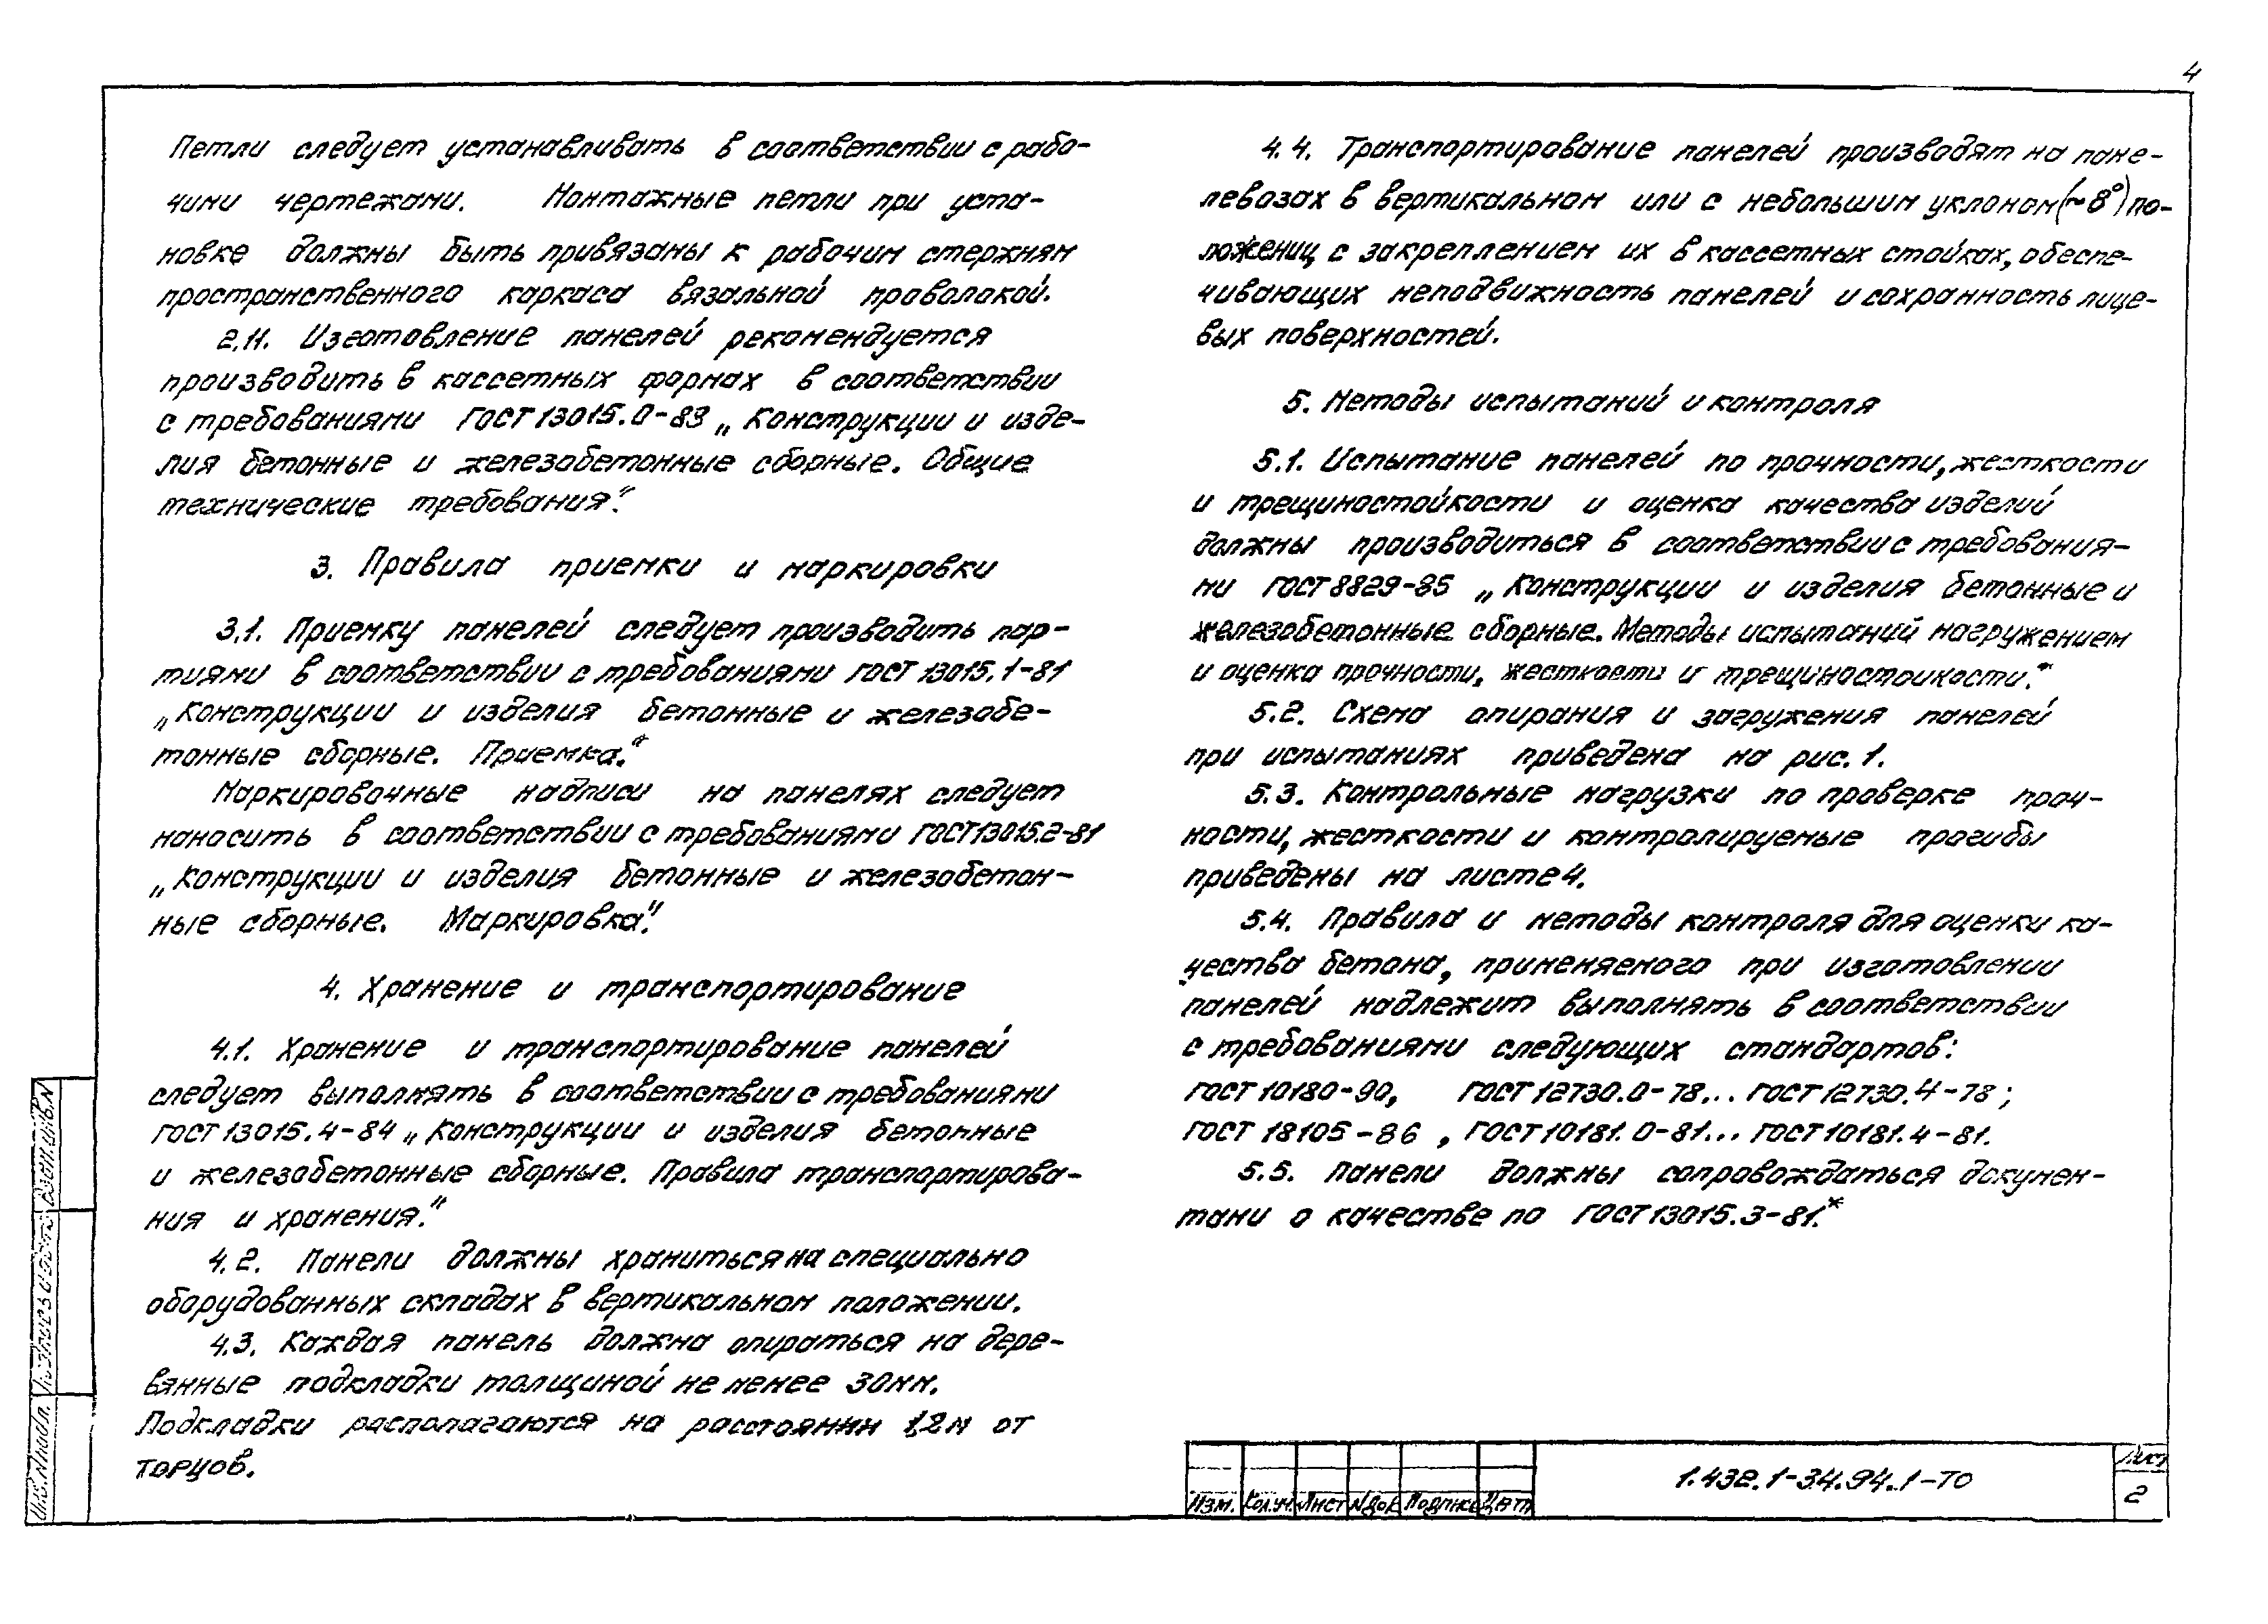 4
Петли следует устанавливать в соответствии с рабо-
чими чертежами. Монтажные петли при уста-
новке должны быть привязаны к рабочим стержням
пространственного каркаса вязальной проволокой.
2.11. Изготовление панелей рекомендуется
производить в кассетных формах в соответствии
с требованиями ГОСТ 13015.0-83 „Конструкции и изде-
лия бетонные и железобетонные сборные. Общие
технические требования“.
3. Правила приемки и маркировки
3.1. Приемку панелей следует производить пар-
тиями в соответствии с требованиями ГОСТ 13015.1-81
„Конструкции и изделия бетонные и железобе-
тонные сборные. Приемка.“
Маркировочные надписи на панелях следует
наносить в соответствии с требованиями ГОСТ 13015.2-81
„Конструкции и изделия бетонные и железобетон-
ные сборные. Маркировка“.
4. Хранение и транспортирование
4.1. Хранение и транспортирование панелей
следует выполнять в соответствии с требованиями
ГОСТ 13015.4-84 „Конструкции и изделия бетонные
и железобетонные сборные. Правила транспортирова-
ния и хранения.“
4.2. Панели должны храниться на специально
оборудованных складах в вертикальном положении.
4.3. Каждая панель должна опираться на дере-
вянные подкладки толщиной не менее 30мм.
Подкладки располагаются на расстоянии 1,2м от
торцов.
4.4. Транспортирование панелей производят на пане-
левозах в вертикальном или с небольшим уклоном (~8°) по-
ложениц с закреплением их в кассетных стойках, обеспе-
чивающих неподвижность панелей и сохранность лице-
вых поверхностей.
5. Методы испытаний и контроля
5.1. Испытание панелей по прочности, жесткости
и трещиностойкости и оценка качества изделий
должны производиться в соответствии с требования-
ми ГОСТ 8829-85 „Конструкции и изделия бетонные и
железобетонные сборные. Методы испытаний нагружением
и оценка прочности, жесткости и трещиностойкости.“
5.2. Схема опирания и загружения панелей
при испытаниях приведена на рис. 1.
5.3. Контрольные нагрузки по проверке проч-
ности, жесткости и контролируемые прогибы
приведены на листе 4.
5.4. Правила и методы контроля для оценки ка-
чества бетона, применяемого при изготовлении
панелей надлежит выполнять в соответствии
с требованиями следующих стандартов:
ГОСТ 10180-90, ГОСТ 12730.0-78... ГОСТ 12730.4-78;
ГОСТ 18105-86, ГОСТ 10181.0-81... ГОСТ 10181.4-81.
5.5. Панели должны сопровождаться докумен-
тами о качестве по ГОСТ 13015.3-81.*
Изм. Кол.уч. Лист №док Подпись Дата
1.432.1-34.94.1-ТО
Лист
2
Инв.№подл. Подпись и дата Взам.инв.№